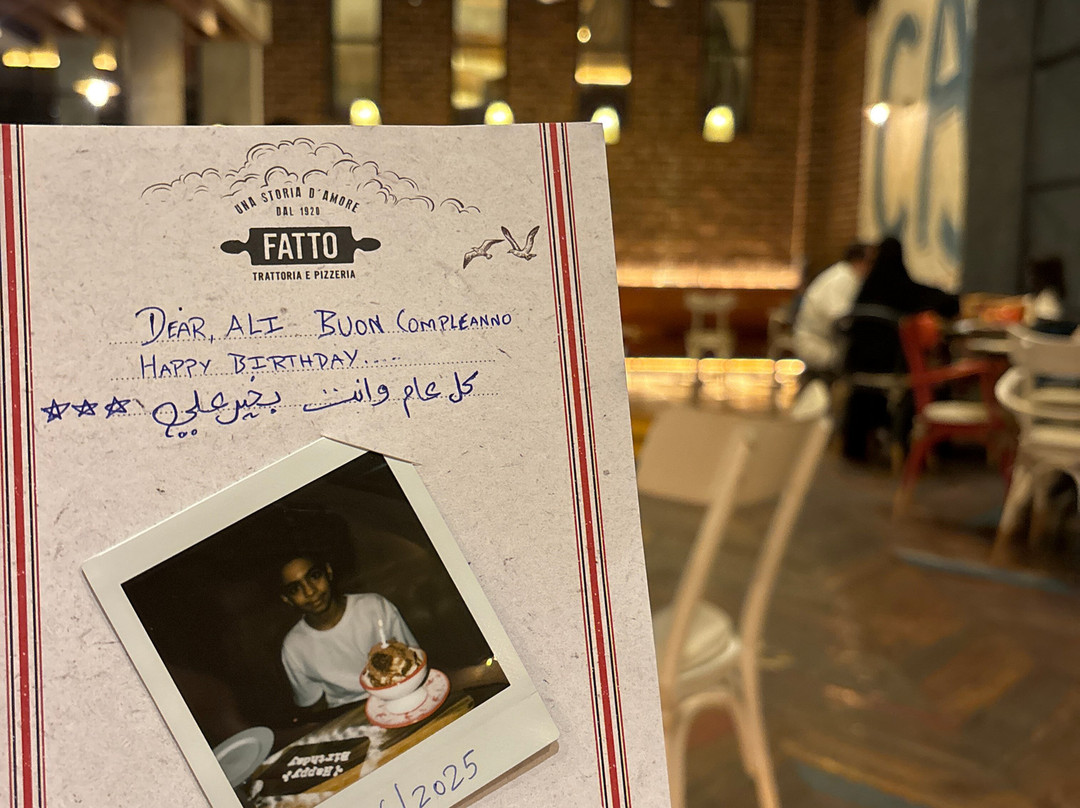 UNA STORIA D'AMORE
DAL 1920
FATTO
TRATTORIA E PIZZERIA
DEAR, ALI BUON COMPLEANNO
HAPPY BIRTHDAY....
كل عام وانت بخير علي
Happy
Birthday
/2025
CA